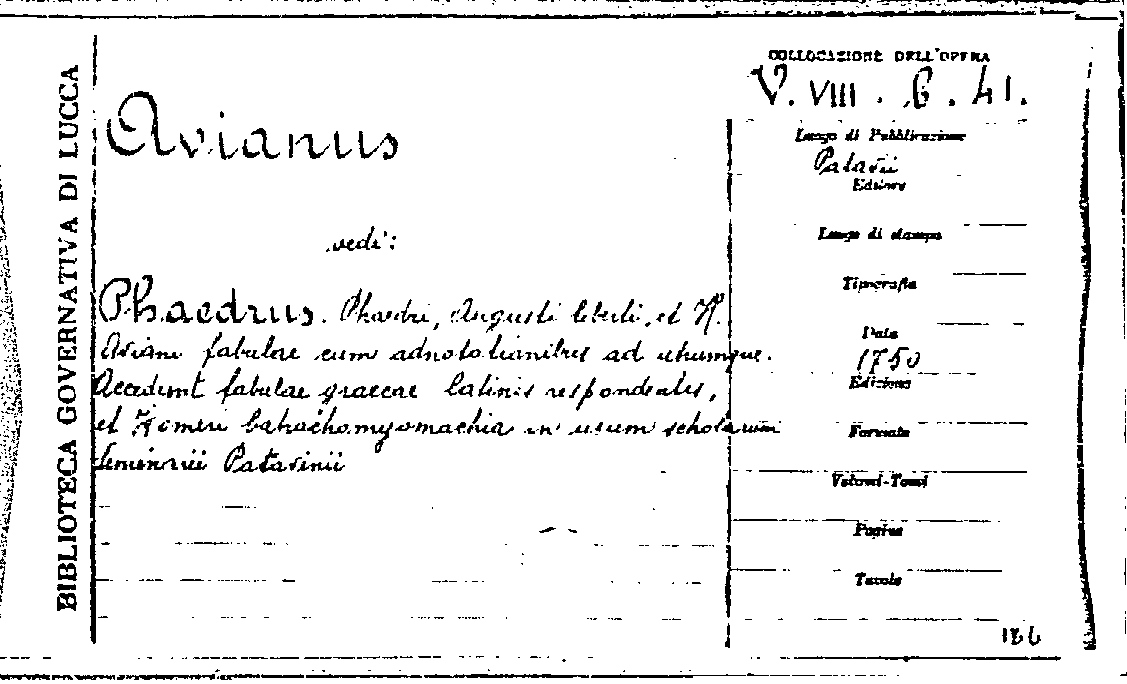 BIBLIOTECA GOVERNATIVA DI LUCCA
Avianus
vedi:
Phaedrus. Phaedri, Augusti liberti, et
Aviani fabulae cum adnotationibus ad utrumque.
Accedunt fabulae graecae latinis respondentes,
et Homeri batrachomyomachia in usum scholarum
Seminarii Patavinii
COLLOCAZIONE DELL'OPERA
V. VIII. 6. 41.
Luogo di Pubblicazione
Patavii
Editore
Luogo di stampa
Tipografia
Data
1750
Edizione
Formato
Volumi-Tomi
Pagine
Tavole
186